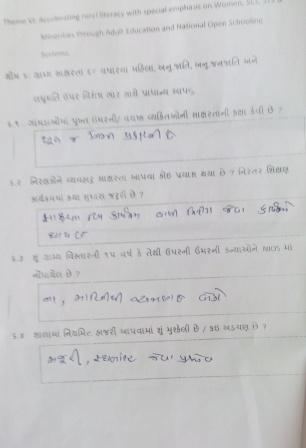 Theme VI: Accelerating rural literacy with special emphasis on Women, SCs, STs &
Minorities through Adult Education and National Open Schooling
Systems.
થીમ ૬: ગ્રામ્ય સાક્ષરતા દર વધારવા મહિલા, અનુ જાતિ, અનુ જનજાતિ અને
લઘુમતિ ઉપર વિશેષ ભાર સાથે પ્રાધાન્ય આપવું.
૬.૧ ગામડાઓમાં પુખ્ત ઉંમરની/ વયસ્ક વ્યક્તિઓની સાક્ષરતાની કક્ષા કેવી છે ?
ખૂબ જ
૬.૨ નિરક્ષરોને વ્યવસાઇ સાક્ષરતા આપવા કોઇ પ્રયાસ થયા છે ? નિરંતર શિક્ષણ
કાર્યક્રમમાં કયા સુધારા જરૂરી છે ?
સાક્ષરતા કાર્યક્રમ જેવા
થાય છે
૬.૩ શું ગ્રામ્ય વિસ્તારની ૧૫ વર્ષ કે તેથી ઉપરની ઉંમરની કન્યાઓને NIOS માં
નોંધાયેલ છે ?
ના,
૬.૪ શાળામાં નિયમિત હાજરી આપવામાં શું મુશ્કેલી છે / કઇ અડચણ છે ?
મજૂરી, સ્થળાંતર જેવા